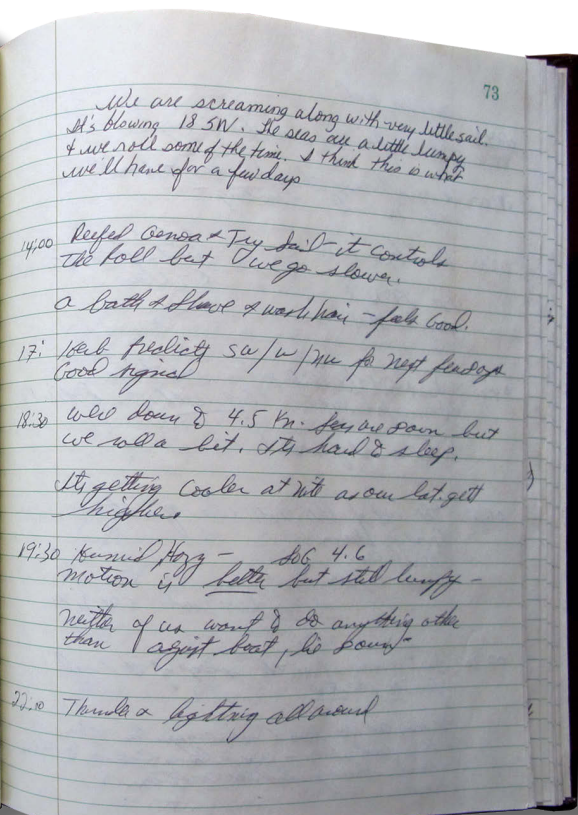 73
We are screaming along with very little sail.
It's blowing 18 SW. The seas are a little lumpy
& we roll some of the time. I think this is what
we'll have for a few days
14:00 Reefed Genoa & Try Sail - it controls
the Roll but we go slower.
a bath & Shave & wash hair - feels Good.
17: Herb Predicts SW/W/NW for next few days
Good signal
18:30 Wind down to 4.5 Kn. Seas are down but
we roll a bit. Its hard to sleep.
Its getting cooler at nite as our lat. gets
higher.
19:30 Humid, Hazy - SOG 4.6
motion is better but still lumpy -
neither of us want to do anything other
than adjust boat, lie down -
22:10 Thunder & lightning all around